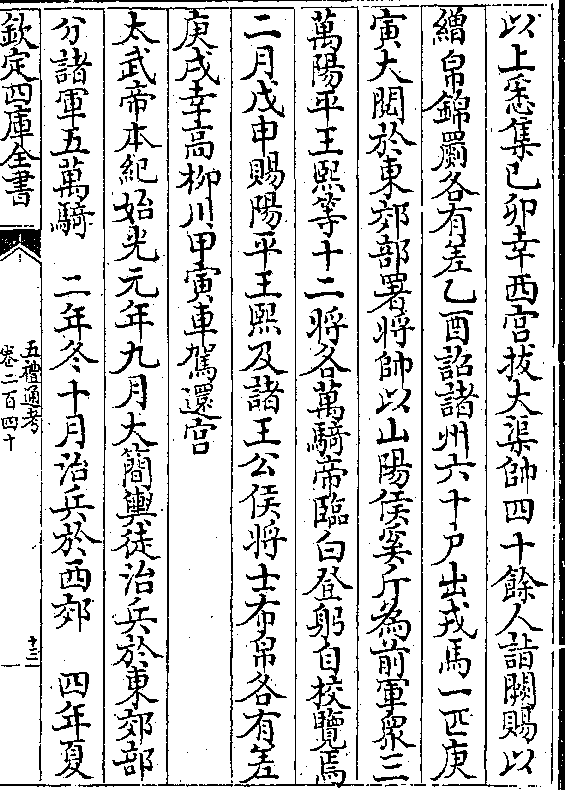 以上悉集己卯幸西宮拔大渠帥四十餘人詣闕賜以
繒帛錦罽各有差乙酉詔諸州六十户出戎馬一匹庚
寅大閱於東郊部署將帥以山陽侯奚斤為前軍衆三
萬陽平王熙等十二將各萬騎帝臨白登躬自校覽焉
二月戊申賜陽平王熙及諸王公侯將士布帛各有差
庚戌幸高柳川甲寅車駕還宫
太武帝本紀始光元年九月大簡輿徒治兵於東郊部
分諸軍五萬騎　二年冬十月治兵於西郊　四年夏
欽定四庫全書
五禮通考
卷二百四十
十三